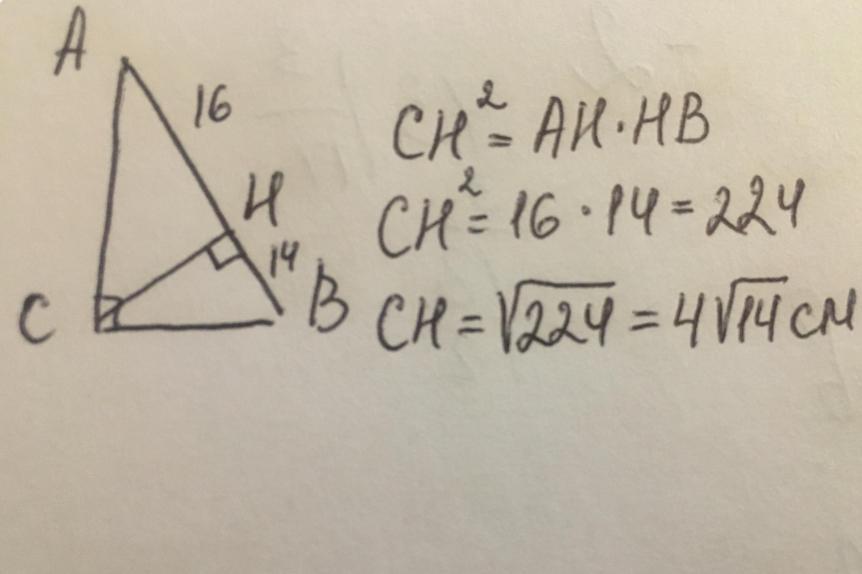 A
16
H
14
C
B
CH² = AH·HB
CH² = 16·14 = 224
CH = √224 = 4√14 см